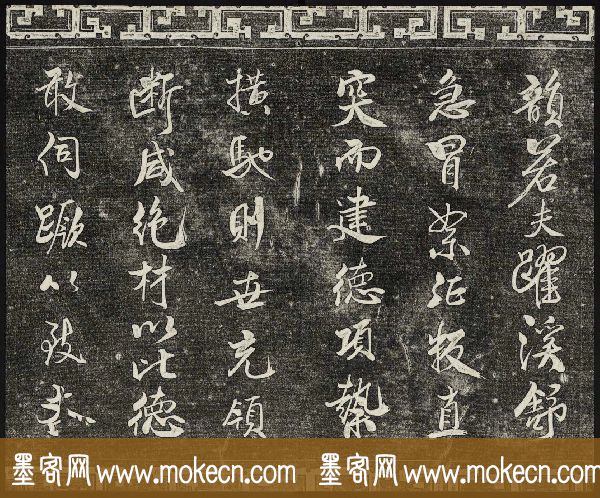 韻若夫躍溪舒
急冒絮征叛直
突而建德項縶
橫馳則世充領
断咸絶材以比德
敢伺蹶以致
墨客网 www.mokecn.com 墨客网 www.mokecn.com